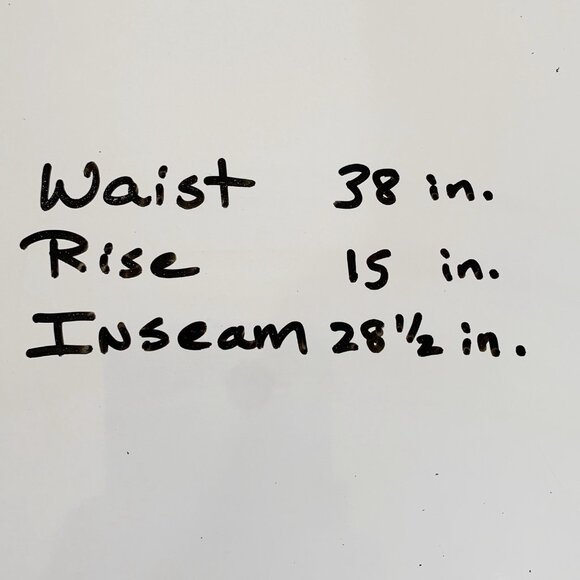 Waist 38 in.
Rise 15 in.
Inseam 28 1/2 in.